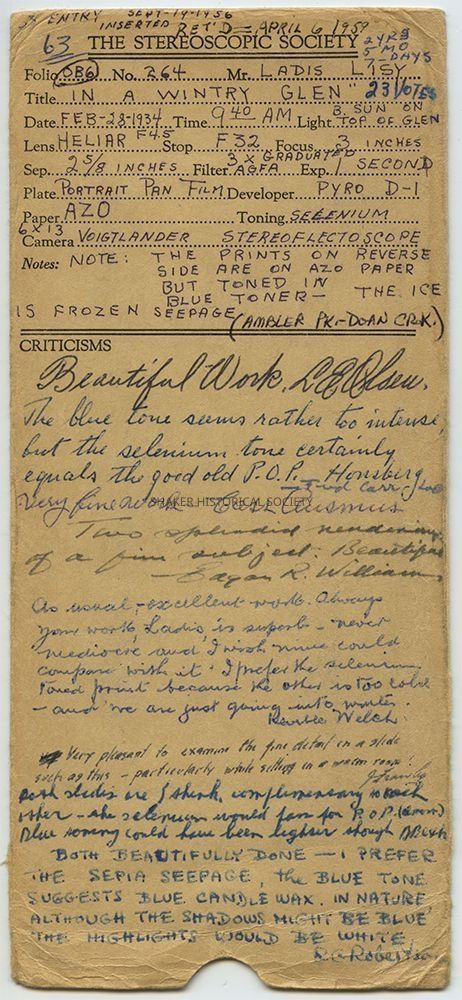 ENTRY SEPT-14-1956
INSERTED RET'D = APRIL 6, 1959
63 THE STEREOSCOPIC SOCIETY 2 YRS
5 MO
7-DAYS
Folio OB6 No. 264 Mr. LADIS LISY
Title IN A WINTRY GLEN" 23 VOTES
Date FEB-28-1934 Time 9 40 AM Light B. SUN ON TOP OF GLEN
Lens HELIAR F45 Stop F32 Focus 3 INCHES
Sep. 2 5/8 INCHES Filter 3 X GRADUATED AGFA Exp. 1 SECOND
Plate PORTRAIT PAN FILM Developer PYRO D-1
Paper AZO Toning SELENIUM
6 X 13
Camera VOIGTLANDER STEREOFLECTOSCOPE
Notes: NOTE: THE PRINTS ON REVERSE
SIDE ARE ON AZO PAPER
BUT TONED IN
BLUE TONER — THE ICE
IS FROZEN SEEPAGE
(AMBLER PK.-DOAN CRK.)
CRITICISMS
Beautiful Work. L E Olsen.
The blue tone seems rather too intense,
but the selenium tone certainly
equals the good old P.O.P. — Honsberg
Very fine work
SHAKER HISTORICAL SOCIETY
Two splendid renderings
of a fine subject. Beautiful
— Edgar R. Williams
As usual, excellent work. Always
your work, Ladis, is superb - never
mediocre and I wish mine could
compare with it. I prefer the selenium
toned print because the other is too cold
- and we are just going into winter.
Welch.
Very pleasant to examine the fine detail in a slide
such as this - particularly while sitting in a warm room!
Both slides are I think, complimentary to each
other - the selenium would pass for P.O.P. (brown)
Blue toning could have been lighter though
BOTH BEAUTIFULLY DONE — I PREFER
THE SEPIA SEEPAGE, the BLUE TONE
SUGGESTS BLUE CANDLE WAX. IN NATURE
ALTHOUGH THE SHADOWS MIGHT BE BLUE
THE HIGHLIGHTS WOULD BE WHITE
R.C. Robertson